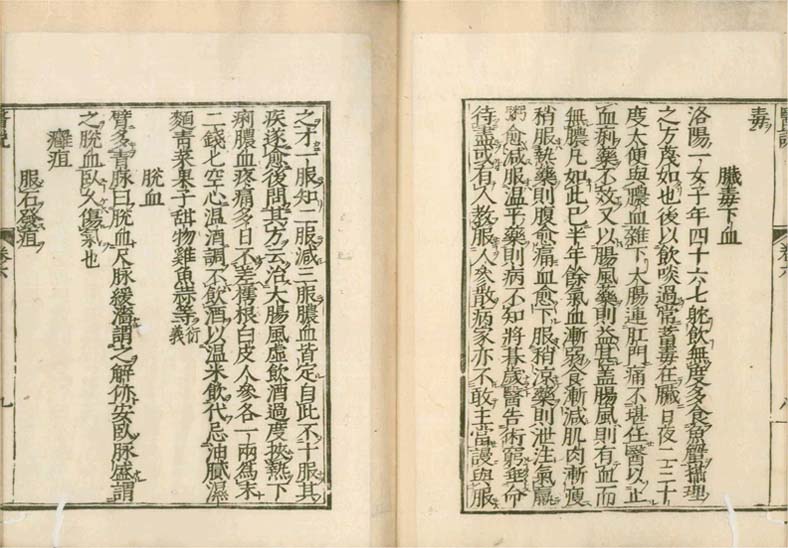 毒
臟毒下血
洛陽一女子年四十六七躭飲無度多食魚蟹攝理
之方蔑如也後以飲啖過常蓄毒在臟日夜二三十
度大便與膿血雜下大腸連肛門痛不堪任醫以止
血痢藥不效又以腸風藥則益甚蓋腸風則有血而
無膿凡如此已半年餘氣血漸弱食漸減肌肉漸瘦
稍服熱藥則腹愈痛血愈下服稍涼藥則泄注氣羸
粥愈減服温平藥則病不知將朞歲醫告術窮垂命
待盡或有人教服人參散病家亦不敢主當謾與服
之才一服知二服減三服膿血皆定自此不十服其
疾遂愈後問其方云治大腸風虛飲酒過度挾熱下
痢膿血疼痛多日不差樗根白皮人參各一兩爲末
二錢匕空心温酒調不飲酒以温米飲代忌油膩濕
麵青菜果子甜物雞魚蒜等衍義
脫血
臂多青脉曰脫血尺脉緩濇謂之解㑊安臥脉盛謂
之脫血臥久傷氣也
癰疽
服石發疽
醫說
卷六
九
醫說
卷六
八